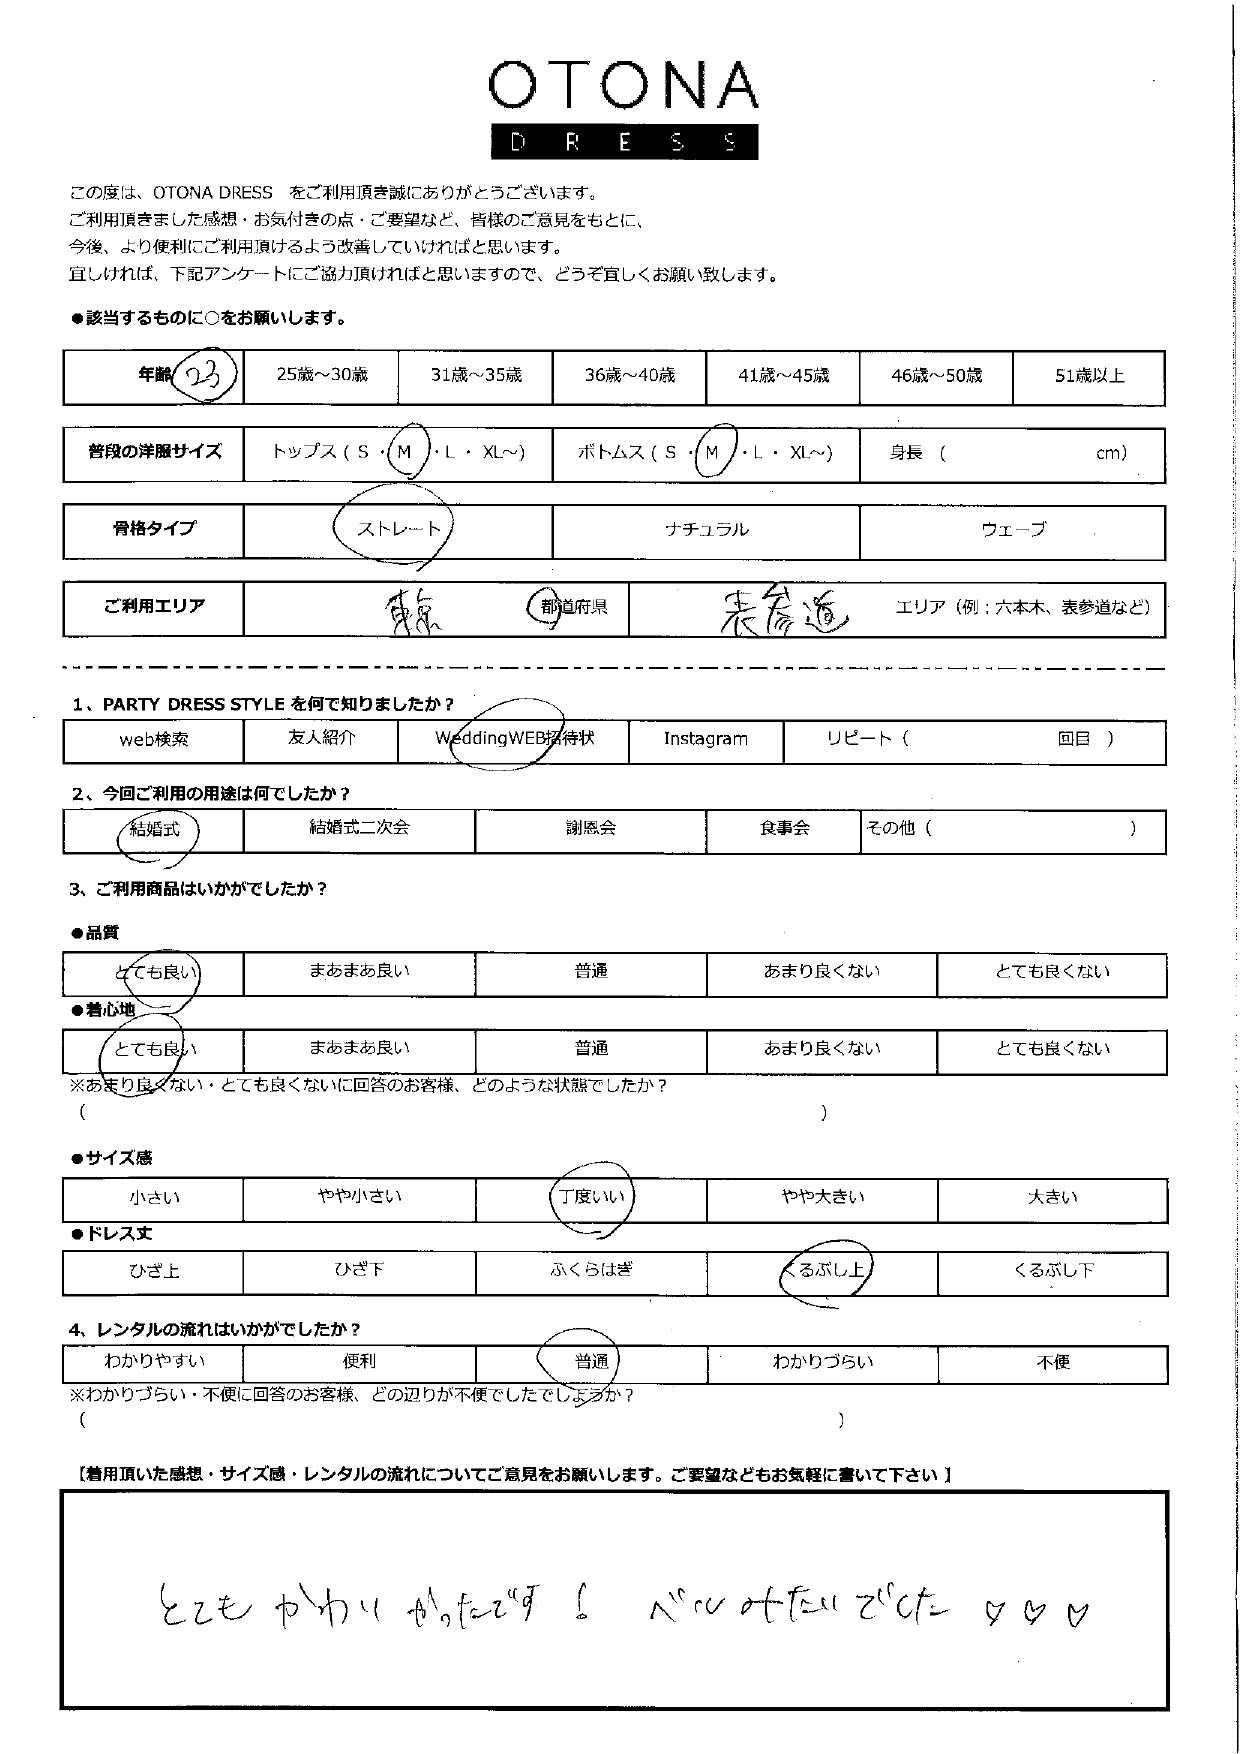 OTONA
DRESS
この度は、OTONA DRESS をご利用頂き誠にありがとうございます。
ご利用頂きました感想・お気付きの点・ご要望など、皆様のご意見をもとに、
今後、より便利にご利用頂けるよう改善していければと思います。
宜しければ、下記アンケートにご協力頂ければと思いますので、どうぞ宜しくお願い致します。
●該当するものに○をお願いします。
年齢 23 25歳～30歳 31歳～35歳 36歳～40歳 41歳～45歳 46歳～50歳 51歳以上
普段の洋服サイズ トップス ( S ・ M ・ L ・ XL～) ボトムス ( S ・ M ・ L ・ XL～) 身長 ( cm)
骨格タイプ ストレート ナチュラル ウェーブ
ご利用エリア 東京 都道府県 表参道 エリア（例：六本木、表参道など）
1、PARTY DRESS STYLE を何で知りましたか？
web検索 友人紹介 WeddingWEB招待状 Instagram リピート（ 回目 ）
2、今回ご利用の用途は何でしたか？
結婚式 結婚式二次会 謝恩会 食事会 その他（ ）
3、ご利用商品はいかがでしたか？
●品質
とても良い まあまあ良い 普通 あまり良くない とても良くない
●着心地
とても良い まあまあ良い 普通 あまり良くない とても良くない
※あまり良くない・とても良くないに回答のお客様、どのような状態でしたか？
( )
●サイズ感
小さい やや小さい 丁度いい やや大きい 大きい
●ドレス丈
ひざ上 ひざ下 ふくらはぎ くるぶし上 くるぶし下
4、レンタルの流れはいかがでしたか？
わかりやすい 便利 普通 わかりづらい 不便
※わかりづらい・不便に回答のお客様、どの辺りが不便でしたでしょうか？
( )
【着用頂いた感想・サイズ感・レンタルの流れについてご意見をお願いします。ご要望などもお気軽に書いて下さい 】
とても かわい かったです！ べルみたいでした ♡ ♡ ♡